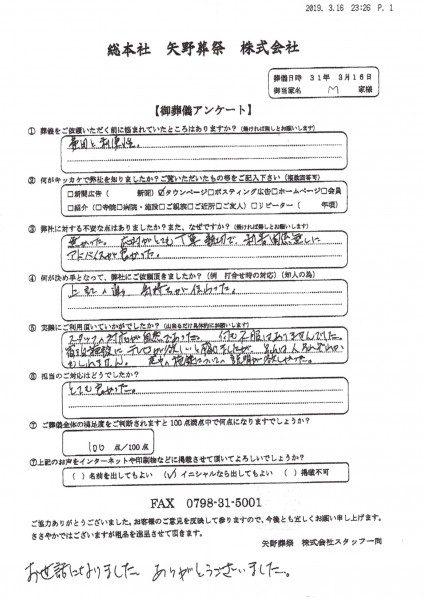 2019. 3.16 23:26 P. 1
総本社 矢野葬祭 株式会社
葬儀日時 31年 3月16日
御当家名 M 家様
【御葬儀アンケート】
① 葬儀をご依頼いただく前に悩まれていたところはありますか？(無ければ無しとお願いします)
費用と利便性。
② 何がキッカケで弊社を知りましたか？ご覧いただいたもの等をご記入下さい(複数回答可)
□新聞広告( 新聞) ☑タウンページ□ポスティング広告□ホームページ□会員
□紹介(□寺院□病院・施設□ご親族□ご近所□ご友人) □リピーター( 年頃)
③ 弊社に対する不安な点はありましたか？また、なぜですか？(無ければ無しとお願いします)
無かった。 応対がとても丁寧 親切で、
アドバイスが良かった。
④ 何が決め手となって、弊社にご依頼頂きましたか？(例 打合せ時の対応)(知人の為)
上記の為。 気持ちが伝わった。
⑤ 実際にご利用頂いていかがでしたか？(出来るだけ具体的にお願いします)
スタッフの対応が自然であった。 何も不服はありませんでした。
宿泊施設にテレビが欲しいと
かもしれません。 の説明が欲しかった。
⑥ 担当のご対応はどうでしたか？
とても良かった。
⑦ ご葬儀全体の満足度をご判断されますと100点満点中で何点になりますでしょうか？
100 点/100点
⑦上記のお声をインターネットや印刷物などに掲載させて頂いてよろしいでしょうか？
( )名前を出してもよい (✓)イニシャルなら出してもよい ( )掲載不可
FAX 0798-31-5001
ご協力ありがとうございました。お客様のご意見を反映して参りますので、今後とも宜しくお願い申し上げます。
ささやかではございますが粗品を進呈させて頂きます。
矢野葬祭 株式会社スタッフ一同
お世話になりました ありがとうございました。